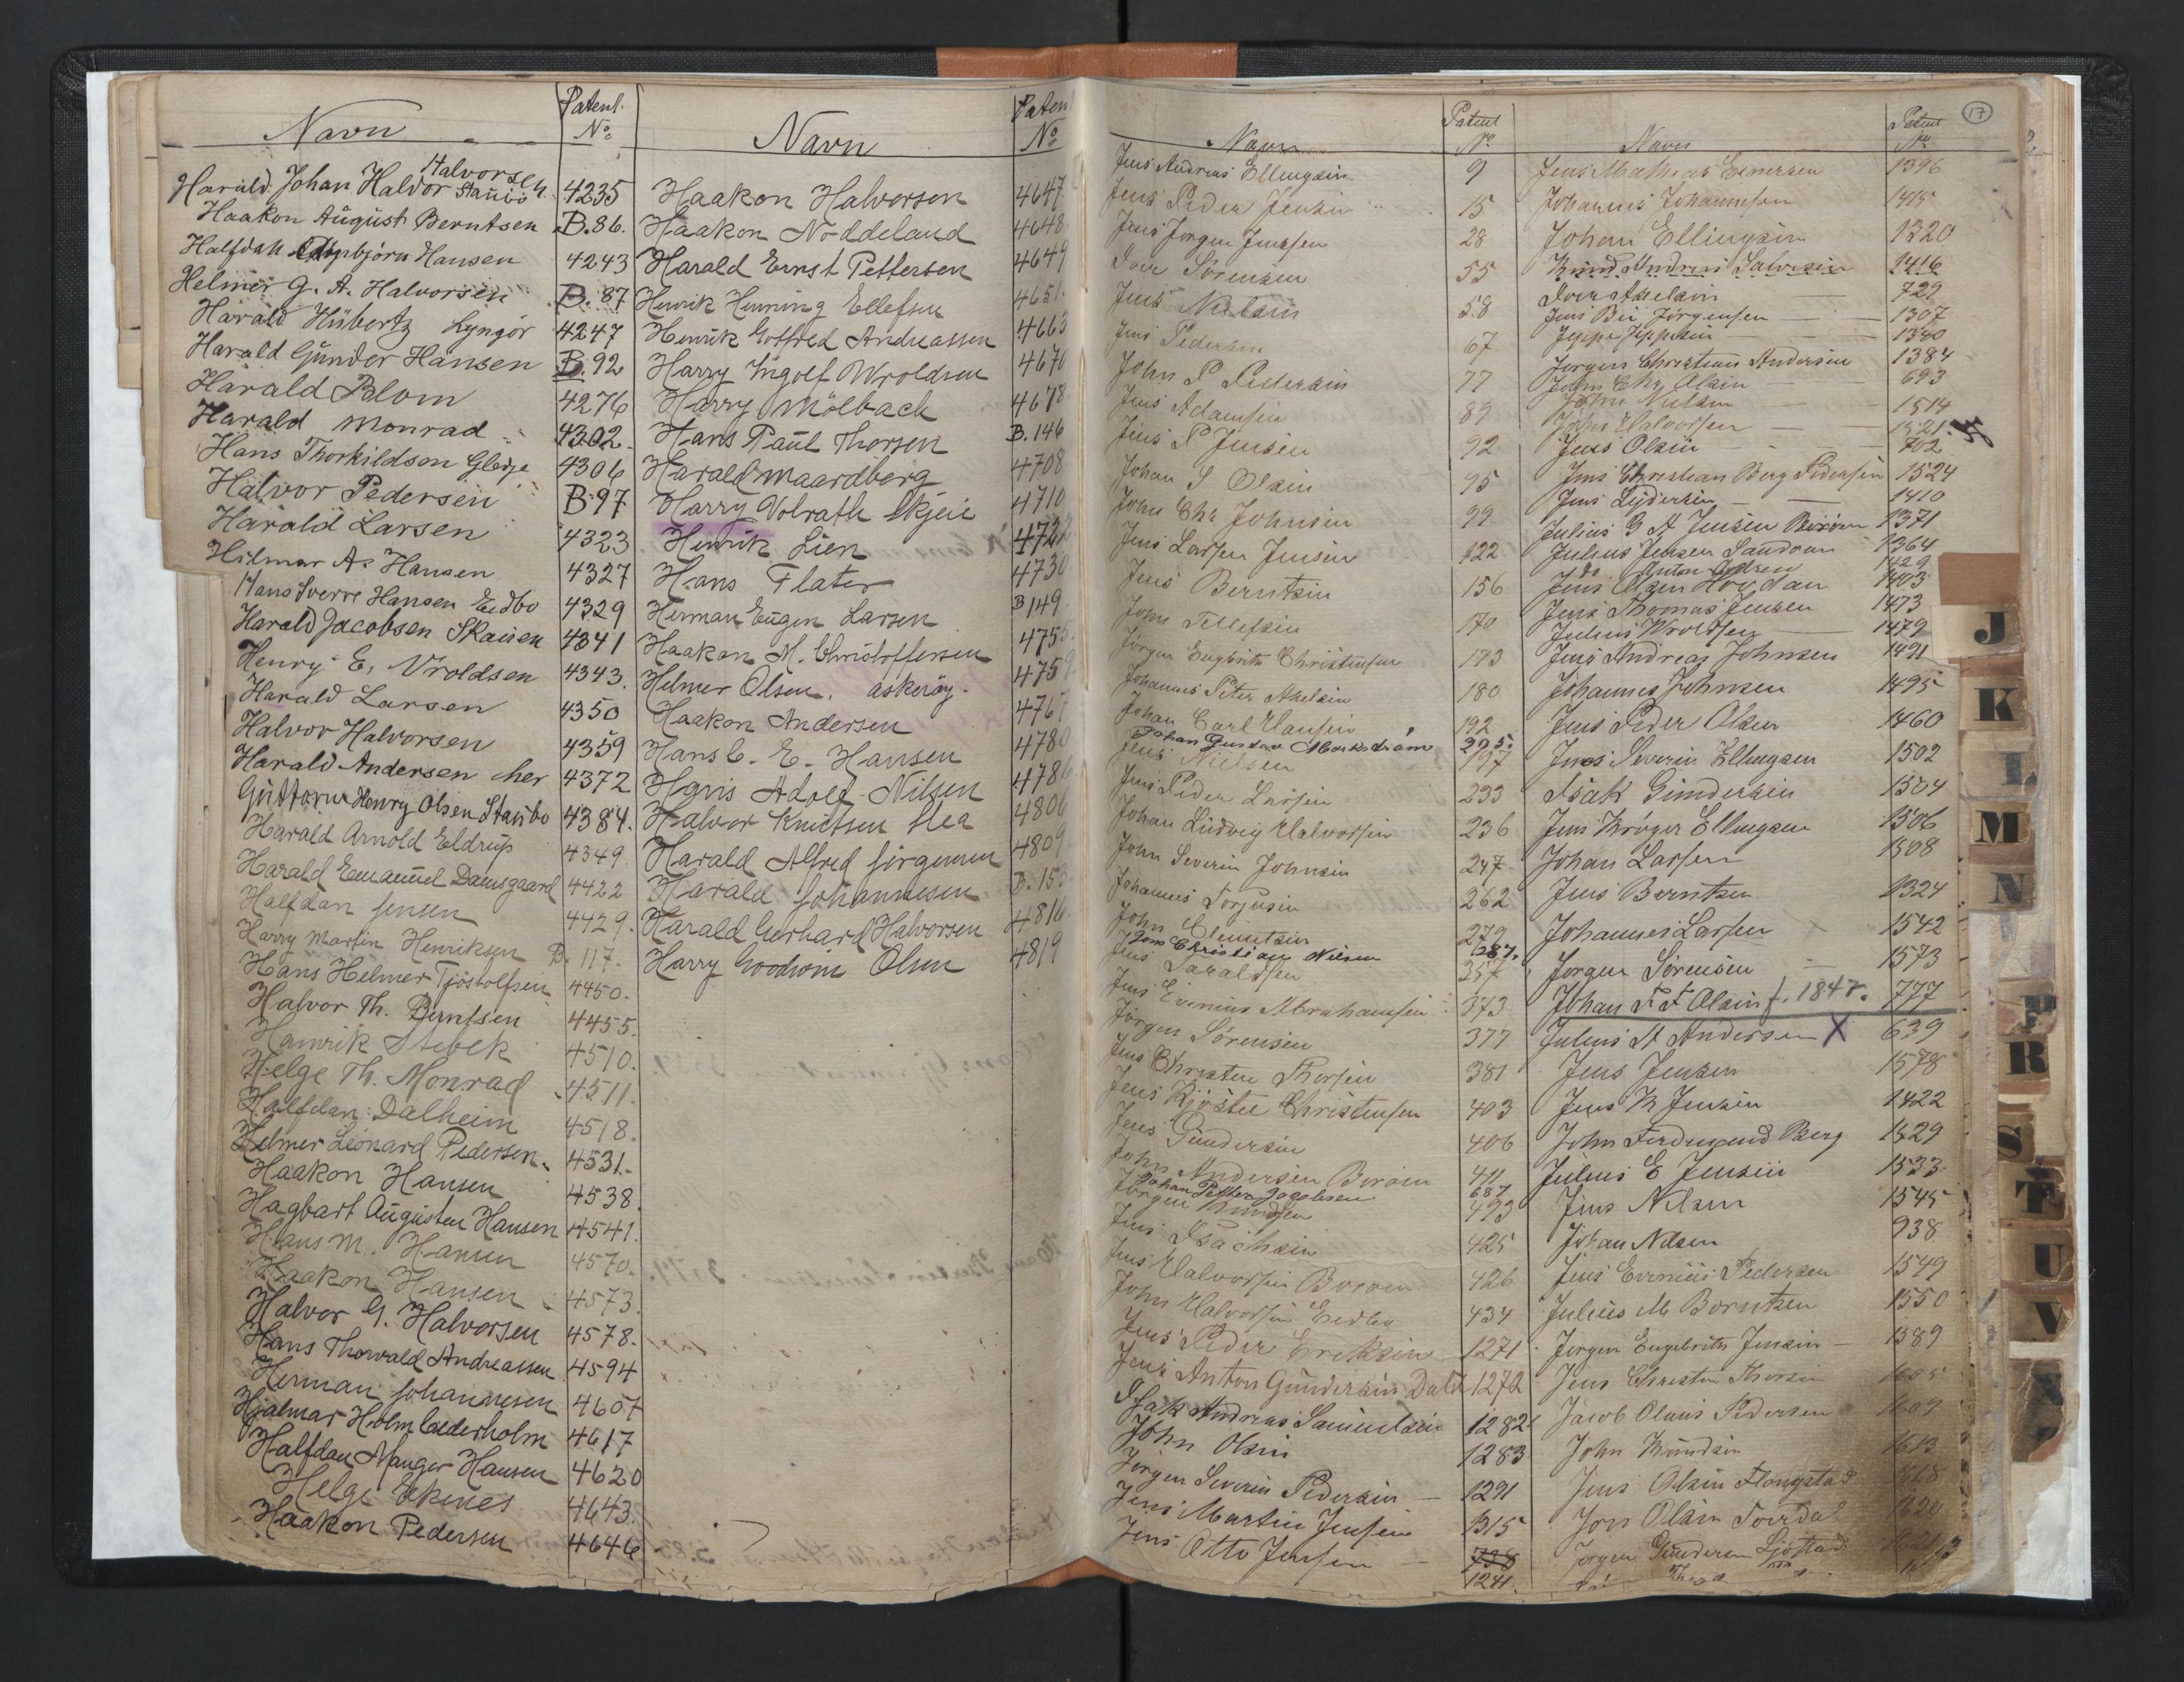 Navn
Patent. No
Harald Johan Haldor Halvorsen Staubö 4235
Haakon August Berntsen B.86.
Halfdan Hansen 4243
Helmer G. A. Halvorsen B. 87
Harald Hübertz Lyngör 4247
Harald Günder Hansen B 92
Harald Blom 4276
Harald Monrad 4302.
Hans Thorkildsen 4306
Halvor Pedersen B 97
Harald Larsen 4323
Hilmar A. Hansen 4327
Hans Sverre Hansen Eedbo 4329
Harald Jacobsen Skaisen 4341
Henry E. Vroldsen 4343.
Harald Larsen 4350
Halvor Halvorsen 4359
Harald Andersen her 4372
Güttorm Henry Olsen Staubo 4384.
Harald Arnold Eldrup 4349.
Harald Emanuel Damsgaard 4422
Halfdan Jensen 4429.
Harry Martin Henriksen B. 117.
Hans Helmer Tjöstolfsen 4450.
Halvor Th. Berntsen 4455.
Henrik Stebek 4510.
Helge Th. Monrad 4511.
Halfdan Dalheim 4518.
Helmer Leonard Pedersen. 4531.
Haakon Hansen 4538.
Hagbart Augusten Hansen 4541.
Hans M. Hansen 4570.
Haakon Hansen 4573.
Halvor G. Halvorsen 4578.
Hans Thorvald Andreassen 4594
Herman Johannesen 4607
Hjalmar Holm Cederholm 4617
Halfdan Manger Hansen 4620
Helge Ekenes 4643.
Haakon Pedersen 4646
Navn
Paten No
Haakon Halvorsen 4647
Haakon Nöddeland 4648
Harald Ernst Pettersen 4649
Henrik Henning Ellefsen 4651.
Henrik Gotfred Andreassen 4663
Harry Ingolf Wroldsen 4670
Harry Mölback 4678
Hans Paul Thorsen B. 146
Harald Maardberg 4708
Harry Volrath Skjeie 4710
Henrik Lien 4722
Hans Flater 4730
Herman Eugen Larsen B 149
Haakon M. Christoffersen 4755.
Helmer Olsen. askeröy. 4759
Haakon Andersen 4767
Hans C. E. Hansen 4780
Hans Adolf Nilsen 4786
Halvor Knutsen Flea 4806
Harald Alfred Jörgensen 4809
Harald Johannesen B. 153
Harald Gerhard Halvorsen 4816
Harry Goodwin Olsen 4819
Navn
Patent No
Jens Andreas Ellingsen 9
Jens Peder Jensen 15
Jens Jorgen Jenssen 28
Iver Sörensen 55
Jens Nielsen 58
Jens Pedersen 67
John P Pedersen 77
Jens Adamsen 89
Jens P Jensen 92
Johan S Olsen 95
John Chr Johnsen 99
Jens Larsen Jensen 122
Jens Berntsen 156
John Tellefsen 170
Jorgen Engbrets Christensen 173
Johannes Peter Axelsen 180
Johan Carl Hansen 192
Johan Gustav Markström 295.
Jens Nielsen 197
Jens Peder Larsen 233
Johan Ludvig Halvorsen 236
John Severin Johnsen 247
Johannes Torjusen 262
John Clemetsen 279
Jens Christian Nilsen 287.
Jens Taraldsen 357
Jens Evenius Abrahamsen 373
Jörgen Sörensen 377
Jens Christen Thorsen 381
Jens Kjostel Christensen 403
Jens Gundersen 406
John Andersen Boröen 411
Johan Petter Jacobsen 687
Jörgen Knudsen 423
Jens Isachsen 425
Jens Halvorsen Boröen 426
John Halvorsen Eedbo 434
Jens Peder Eriksen 1271
Jens Anton Gundersen Dale 1272
Isak Andreas Samuelsen 1282
John Olsen 1283
Jörgen Severin Pedersen 1291
Jens Martin Jensen 1315
Jens Otto Jensen 1241.
Navn
Patent No
17
Jens Mathias Evensen 1396
Johannes Johannesen 1415
Johan Ellingsen 1320
Knud Andreas Salvesen 1416
Iver Axelsen 729
Jens Bei Jörgensen 1307
Jeppe Jeppesen 1340
Jorgen Christian Andersen 1384
John Chr Olsen 693
John Nielsen 1514
John Halvorsen 1521.
Jens Olsen 702
Jens Christian Berg Pedersen 1524
Jens Lydersen 1410
Julius G A Jensen 1371
Julius Jensen Sandöen 1364
do Anton 1429
Jens Olsen Hovdan 1403
Jens Thomas Jensen 1473
Julius Wroldsen 1479
Jens Andreas Johnsen 1491
Johannes Johnsen 1495
Jens Peder Olsen 1460
Jens Severin Ellingsen 1502
Isak Gundersen 1504
Jens Kröger Ellingsen 1506
Johan Larsen 1508
Jens Berntsen 1324
Johannes Larsen 1542
Jorgen Sörensen 1573
Johan F F Olsen f. 1847. 777
Julius A Andersen X 639
Jens Jensen 1578
Jens K Jensen 1422
John Ferdinand Berg 1529
Julius E Jensen 1533
Jens Nilsen 1545
Johan Nilsen 938
Jens Evenius Pedersen 1549
Julius M Berntsen 1550
Jorgen Engebrets Jensen 1589
Jens Christen Thorsen 1605
Jacob Olaus Pedersen 1609
John Knudsen 1613
Jens Olsen Flougstad 1618
Jon Olsen 1620
Jorgen Gundersen Sjöstad 1621
J
K
L
M
N
P
R
S
T
U
V